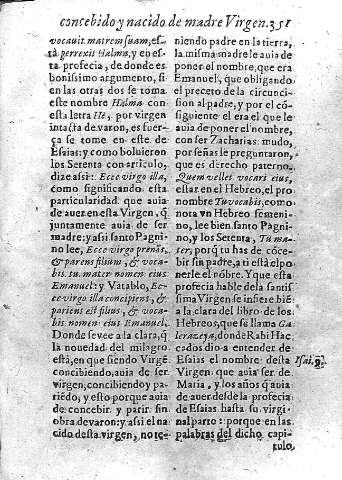 concebido y nacido de madre Virgen. 351
vocauit matrem suam, es-
tà perrexit Halma, y en es-
ta profecia, de donde es
bonissimo argumento, si
en las otras dos se toma
este nombre Halma con
esta letra He, por virgen
intacta de varon, es fuer-
ça se tome en este de
Esaias: y como boluieron
los Setenta con articulo,
dize assi: Ecce virgo illa,
como significando esta
particularidad que auia
de auer en esta Virgen, q̃
juntamente auia de ser
madre; y assi santo Pagni-
no lee, Ecce virgo prenãs,
& pariens filium, & voca-
bis tu mater nomen eius
Emanuel: y Vatablo, Ec-
ce virgo illa concipiens, &
pariens est filius, & voca-
bis nomen eius Emanuel,
Donde se vee a la clara, q̃
la nouedad del milagro
està, en que siendo Virgẽ
concibiendo, auia de ser
virgen, concibiendo y pa-
riẽdo, y esto porque auia
de concebir y parir sin
obra de varon: y assi el na
cido desta virgen, no te-
niendo padre en la tierra,
la misma madre le auia de
poner el nombre, que era
Emanuel, que obligando
el preceto de la circunci-
sion al padre, y por el cõ-
siguiente el era el que le
auia de poner el nombre,
con ser Zacharias mudo,
por señas le preguntaron,
que es derecho paterno.
Quem vellet vocari eius,
estar en el Hebreo, el pro
nombre Tu vocabis, como
nota vn Hebreo femeni-
no, lee bien santo Pagni-
no, y los Setenta, Tu ma-
ter, porq̃ tu has de cõce-
bir sin padre, a ti està el po
nerle el nõbre. Y que esta
profecia hable de la santis
sima Virgen se infiere biẽ
a la clara del libro de los
Hebreos, que se llama Ga
lerazeya, donde Rabi Hac
cados dio a entender de
Esaias el nombre desta
Virgen que auia ser de
Maria, y los años q̃ auia
de auer desde la profecia
de Esaias hasta su virgi-
nal parto: porque en las
palabras del dicho capi-
tulo,
Isai. 9.